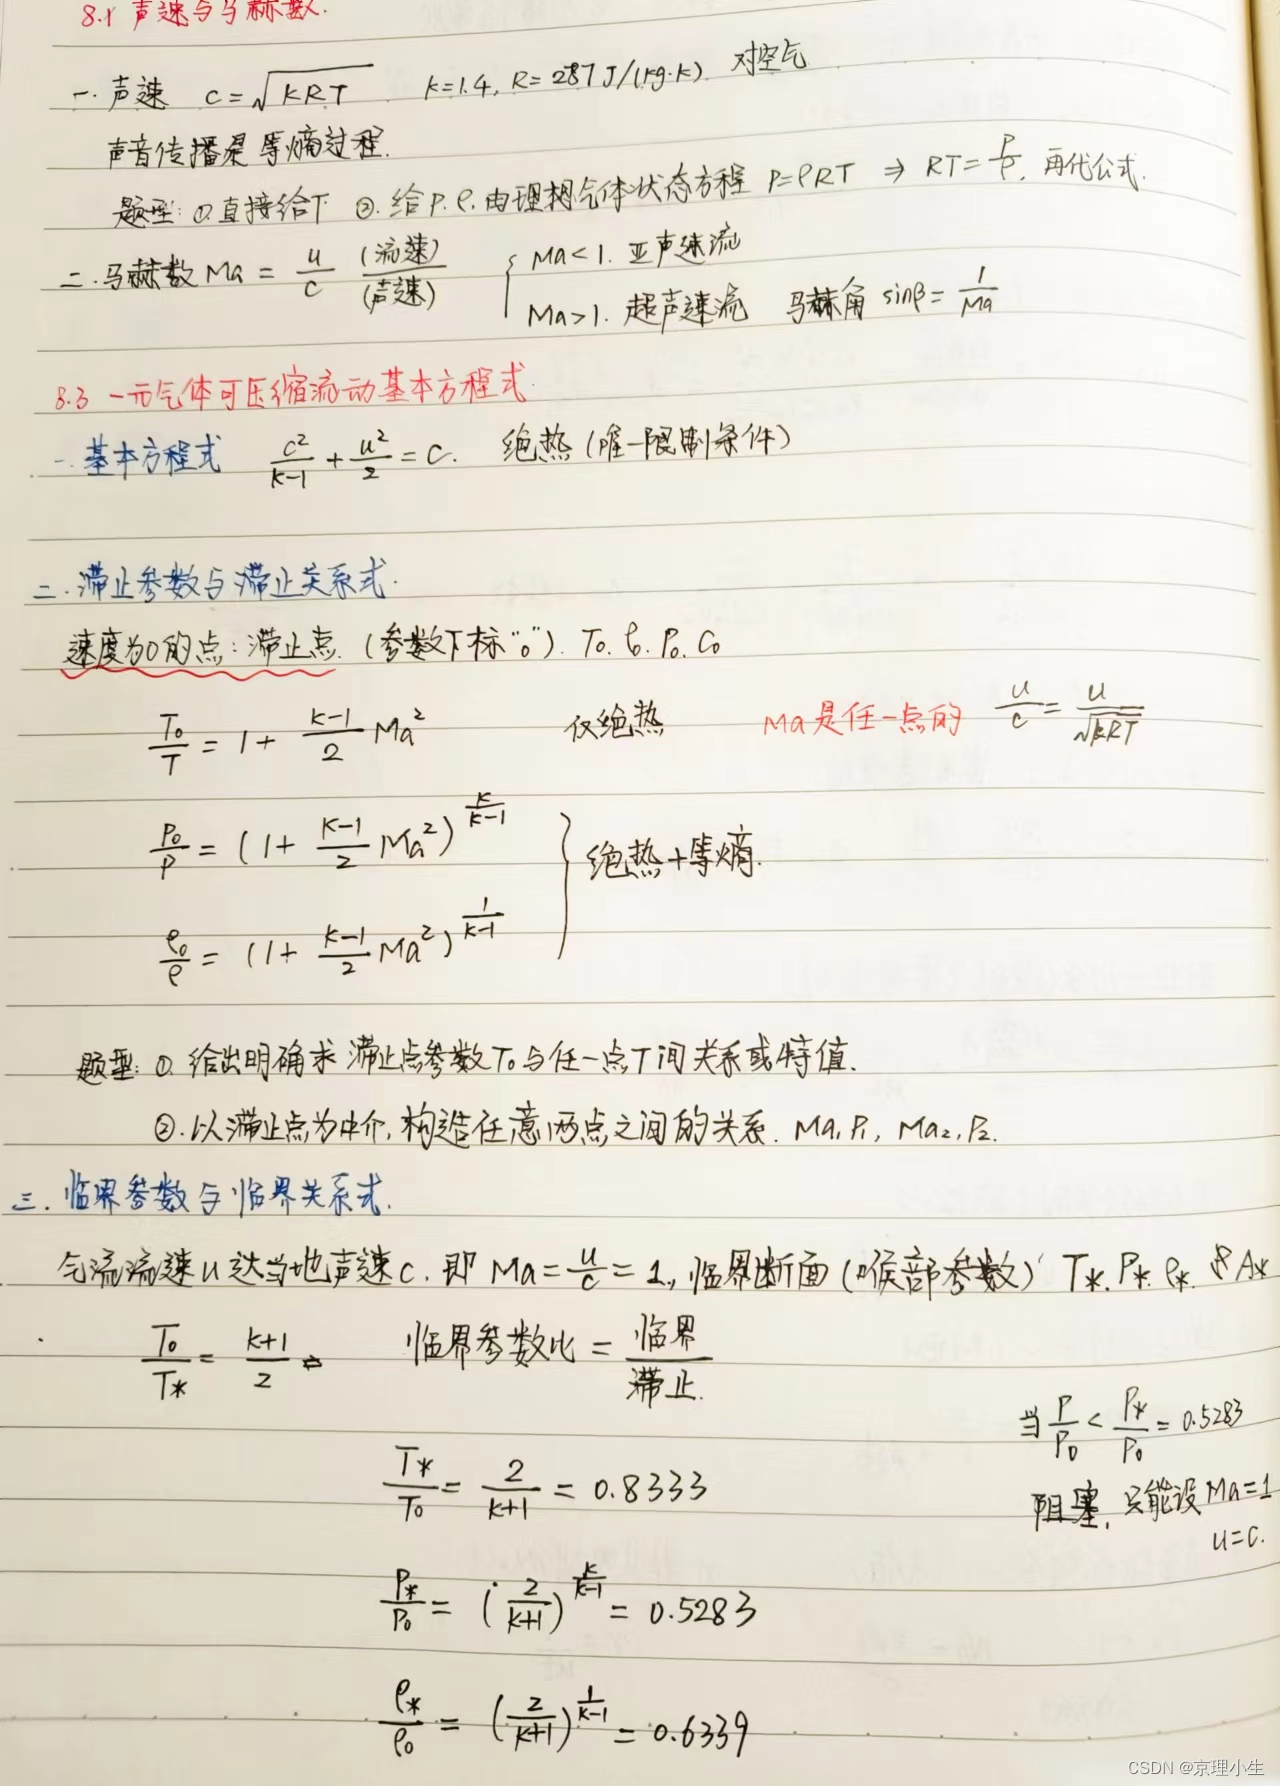 8.1 声速与马赫数.
一. 声速 c=√kRT k=1.4, R=287J/(kg·k). 对空气
声音传播是等熵过程.
题型: ①.直接给T ②.给P.ρ.由理想气体状态方程 P=ρRT ⇒ RT=P/ρ. 再代公式.
二.马赫数 Ma = u/c (流速)/(声速) { Ma<1. 亚声速流
Ma>1. 超声速流 马赫角 sinβ=1/Ma
8.3 一元气体可压缩流动基本方程式.
一.基本方程式 c²/(k-1) + u²/2 = C. 绝热(唯一限制条件)
二.滞止参数与滞止关系式.
速度为0的点:滞止点.(参数下标"0"). T₀. ρ₀. P₀. C₀
T₀/T = 1+ (k-1)/2 Ma² 仅绝热 Ma是任一点的 u/c = u/√kRT
P₀/P = (1+ (k-1)/2 Ma²)^(k/(k-1))
} 绝热+等熵.
ρ₀/ρ = (1+ (k-1)/2 Ma²)^(1/(k-1))
题型: ①.给出明确求滞止点参数T₀与任一点T间关系或特值.
②.以滞止点为中介,构造任意两点之间的关系. Ma₁P₁, Ma₂,P₂.
三.临界参数与临界关系式.
气流流速u达当地声速c.即 Ma=u/c=1,临界断面(喉部参数) T*.P*.ρ*. A*
T₀/T* = (k+1)/2 ⇒ 临界参数比 = 临界/滞止.
当 P/P₀ < P*/P₀ = 0.5283
T*/T₀ = 2/(k+1) = 0.8333
阻塞,只能设Ma=1
u=c.
P*/P₀ = (2/(k+1))^(k/(k-1)) = 0.5283
ρ*/ρ₀ = (2/(k+1))^(1/(k-1)) = 0.6339
CSDN @京理小生